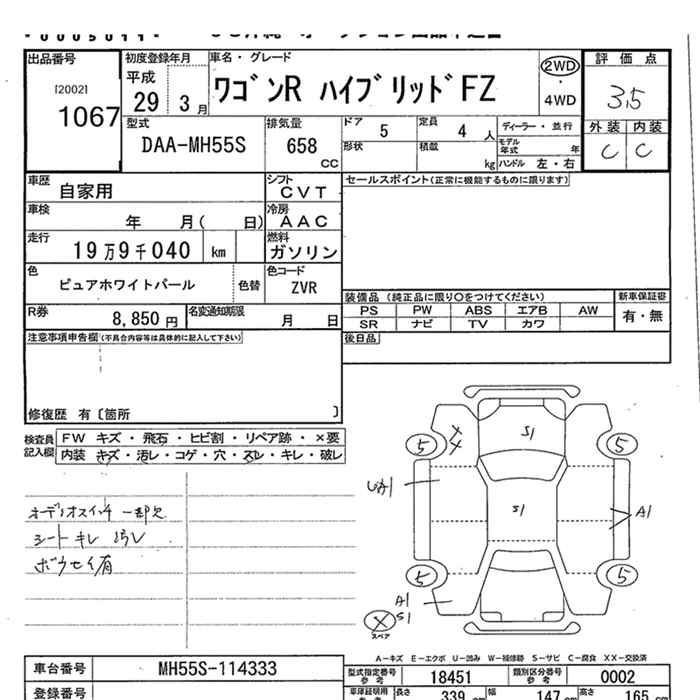 出品番号
[2002]
1067
初度登録年月
平成
29 3 月
車名・グレード
ワゴンR ハイブリッドFZ
2WD
4WD
評価点
3.5
外装 内装
C C
型式
DAA-MH55S
排気量
658
CC
ドア
5
定員
4 人
形状
積載
kg
ディーラー・並行
モデル年式 年
ハンドル 左・右
車歴
自家用
シフト
CVT
車検
年 月( 日)
冷房
AAC
走行
19万9千040 km
燃料
ガソリン
色
ピュアホワイトパール
色替
色コード
ZVR
R券
8,850 円
名変通知期限
月 日
セールスポイント(正常に機能するものに限ります)
装備品 (純正品に限り○をつけてください)
新車保証書
PS PW ABS エアB AW
有・無
SR ナビ TV カワ
後日品
注意事項申告欄(不具合内容等は具体的に記入して下さい)
修復歴 有〔箇所 〕
検査員記入欄
FW キズ・飛石・ヒビ割・リペア跡・×要
内装 キズ・汚レ・コゲ・穴・スレ・キレ・破レ
オーディオスイッチ 一部欠
シート キレ 汚レ
ボウセイ有
S1
5 5
A1
S1
A1
5 5
A1
S1
スペア
A-キズ E-エクボ U-凹み W-補修跡 S-サビ C-腐食 XX-交換済
車台番号
MH55S-114333
型式指定番号
参考
18451
類別区分番号
参考
0002
登録番号
車庫証明用
参考
長さ
339 cm
幅
147 cm
高さ
165 cm